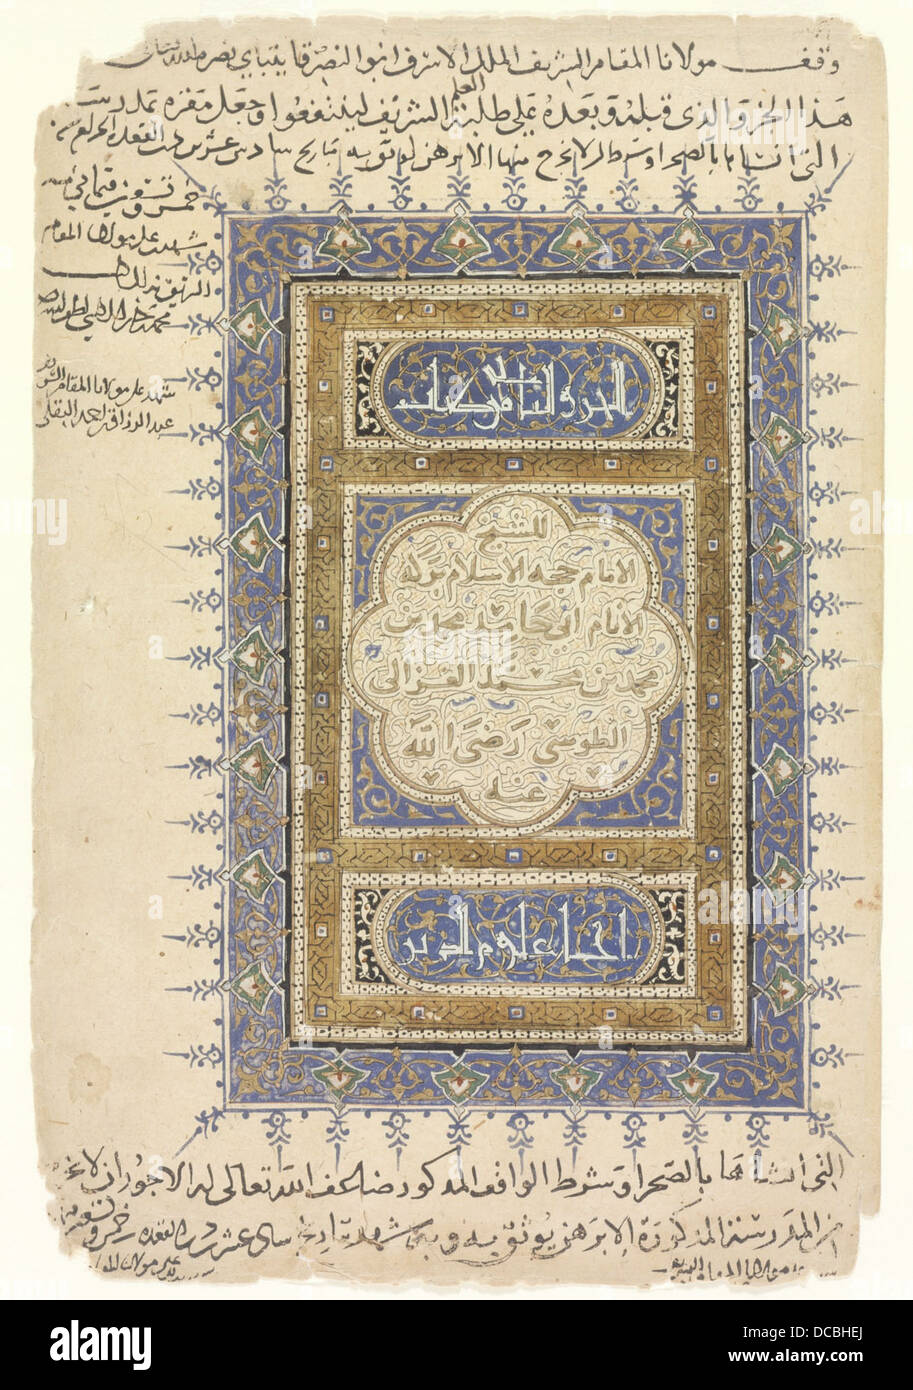 وقف مولانا المقام الشريف الملك الاشرف ابو النصر قايتباي نصره الله تعالى
هذا الجزو والذي قبله وبعده على طلبة العلم الشريف لينتفعوا به وجعل مقره بمدرسته
التي انشاها بالصحرا وشرط ان لا يخرج منها الا برهن يوثق به بتاريخ سادس عشرين القعدة الحرام سنة
خمس وتسعين وثمانمائة
شهد على مولانا المقام
الشريف بذلك
محمد
شهد على مولانا المقام الشريف
عبد الرزاق بن احمد البقلي
الجزو الثامن من كتاب
للشيخ
الامام حجة الاسلام بركة
الانام ابي حامد محمد بن
محمد بن محمد الغزالي
الطوسي رضي الله
عنه
احياء علوم الدين
التي انشاها بالصحرا وشرط الواقف المذكور ضاعف الله تعالى له الاجور ان لا يخرج
من المدرسة المذكورة الا برهن يوثق به وبه شهد بتاريخ سادس عشرين القعدة خمس وتسعين
alamy
a
DCBHEJ
www.alamy.com